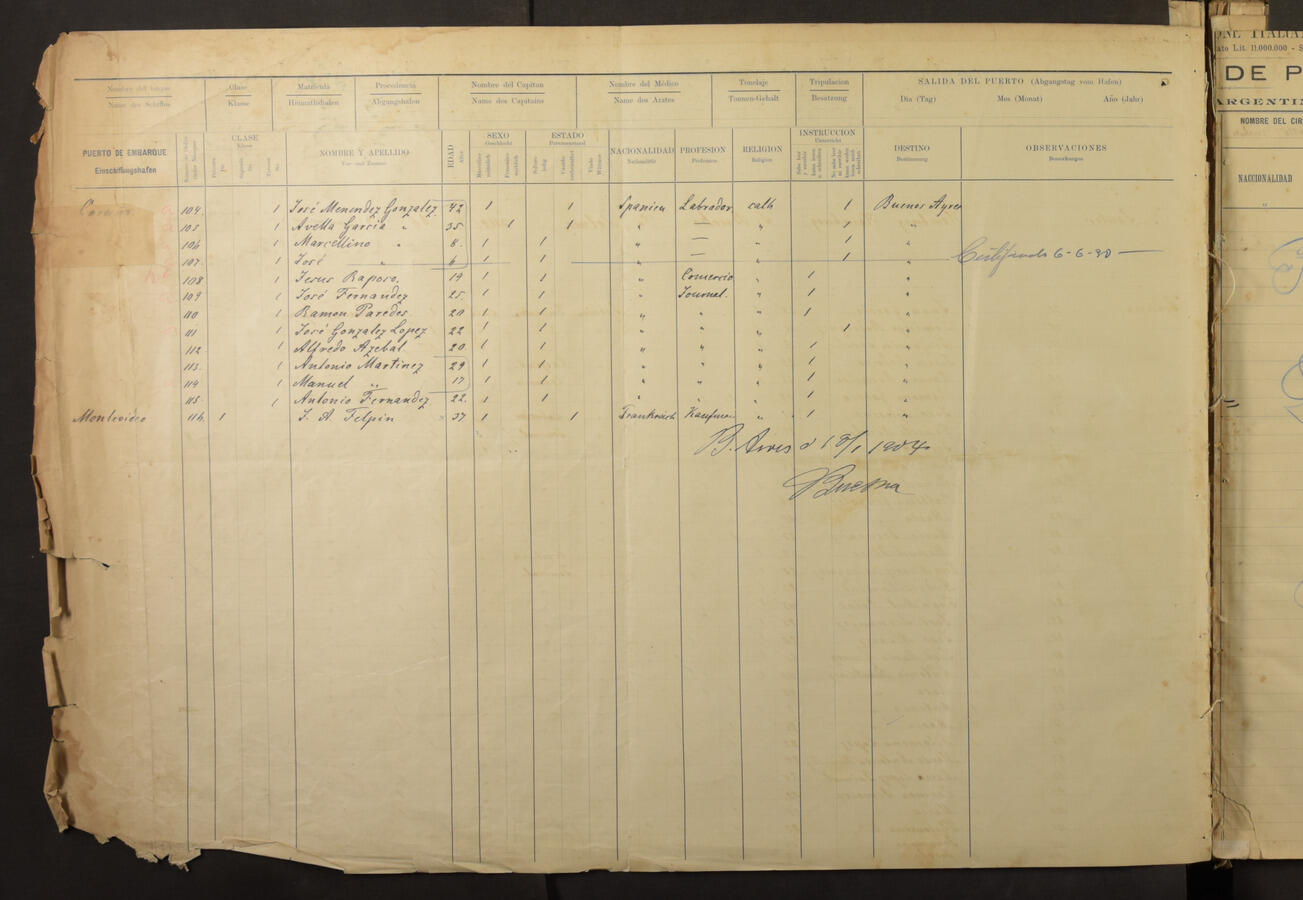 Nombre del buque Clase Matrícula Procedencia Nombre del Capitan Nombre del Médico Tonelaje Tripulacion SALIDA DEL PUERTO (Abgangstag vom Hafen)
Name des Schiffes Klasse Heimathshafen Abgangshafen Name des Capitains Name des Arztes Tonnen-Gehalt Besatzung Dia (Tag) Mes (Monat) Año (Jahr)
PUERTO DE EMBARQUE CLASE NOMBRE Y APELLIDO EDAD SEXO ESTADO NACIONALIDAD PROFESION RELIGION INSTRUCCION DESTINO OBSERVACIONES
Einschiffungshafen Klasse Vor- und Zuname Alter Geschlecht Personenstand Nationalität Profession Religion Unterricht Bestimmung Bemerkungen
104 1 José Menendez Gonzalez 42 1 1 Spanien Labrador cath 1 Buenos Ayres
105 1 Avella Garcia " 35 1 1 " — " 1 "
106 1 Marcellino " 8 1 1 " — " 1 "
107 1 José " 6 1 1 " — " 1 " Certificado 6-6-90 —
108 1 Jesus Raposo 19 1 1 " Comercio " 1 "
109 1 José Fernandez 25 1 1 " Journal. " 1 "
110 1 Ramon Paredes 20 1 1 " " " 1 "
111 1 José Gonzalez Lopez 22 1 1 " " " 1 "
112 1 Alfredo Azebal 20 1 1 " " " 1 "
113 1 Antonio Martinez 29 1 1 " " " 1 "
114 1 Manuel " 17 1 1 " " " 1 "
115 1 Antonio Fernandez 22 1 1 " " " 1 "
Montevideo 116 1 J. A. Telpin 37 1 1 Frankreich Kaufman " 1 "
B. Aires 1904
ONE ITALIA
ato Lit. 11.000.000 - S
DE P
ARGENTIN
NOMBRE DEL CIR
NACCIONALIDAD